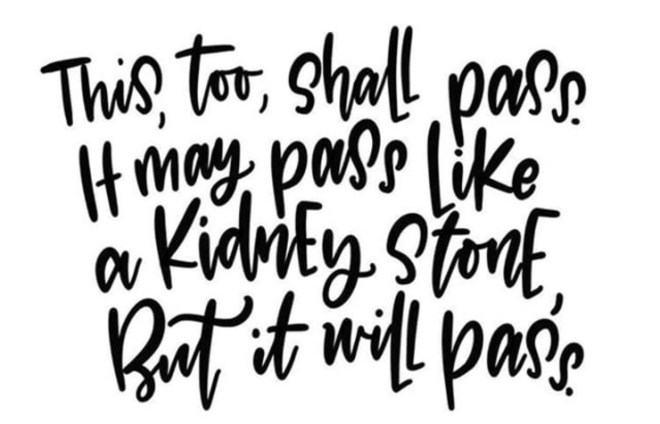 This, too, shall pass.
It may pass like
a kidney stone,
But it will pass.